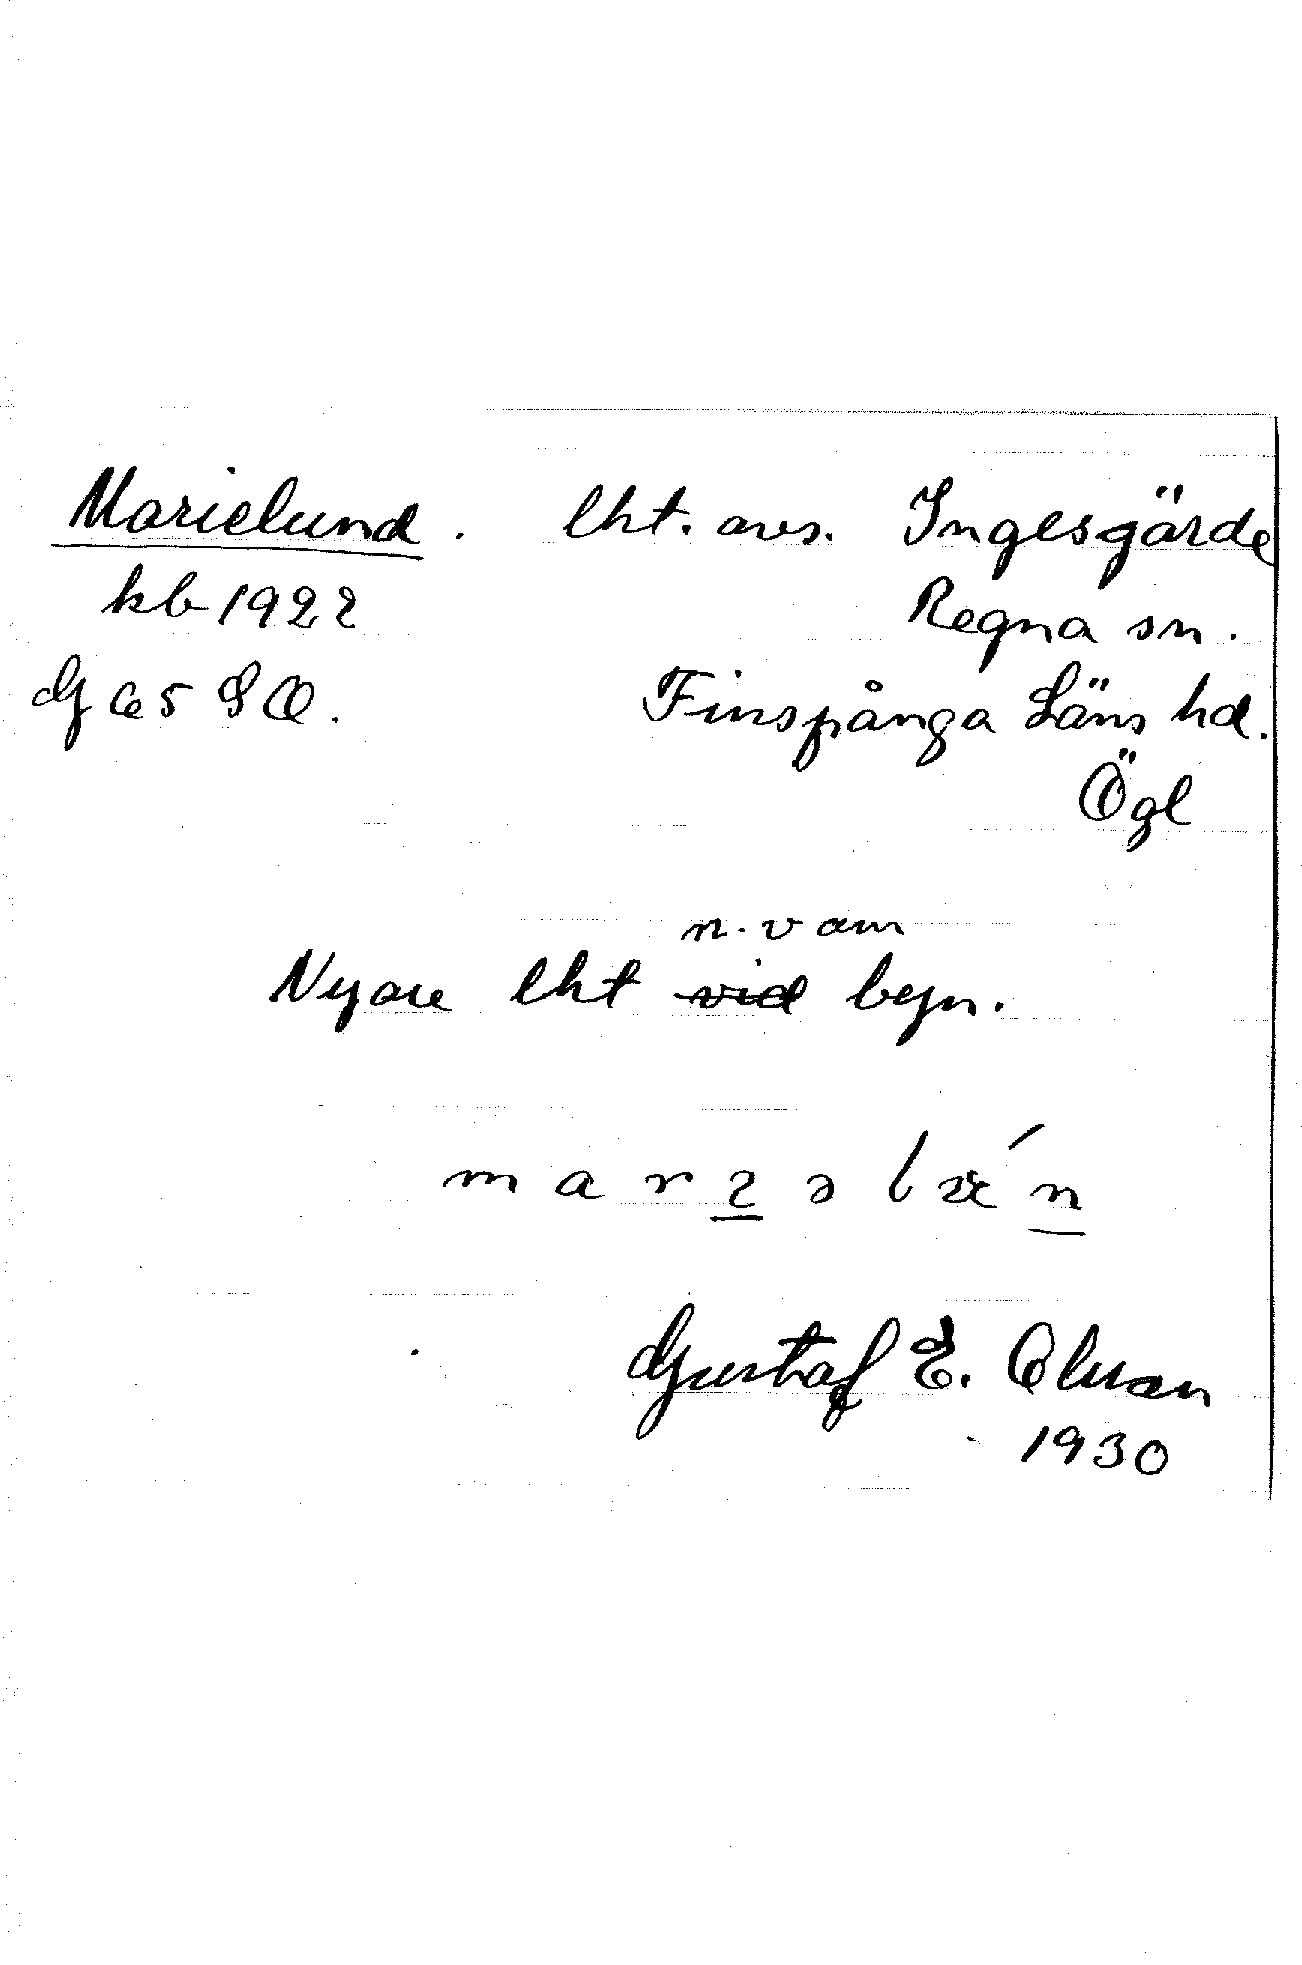 Marielund. lht. avs. Ingesgärde
kb 1922 Regna sn.
Finspånga Läns hd.
Ögl
n. v om
Nyare lht vid byn.
Gustaf E. Olsson
1930